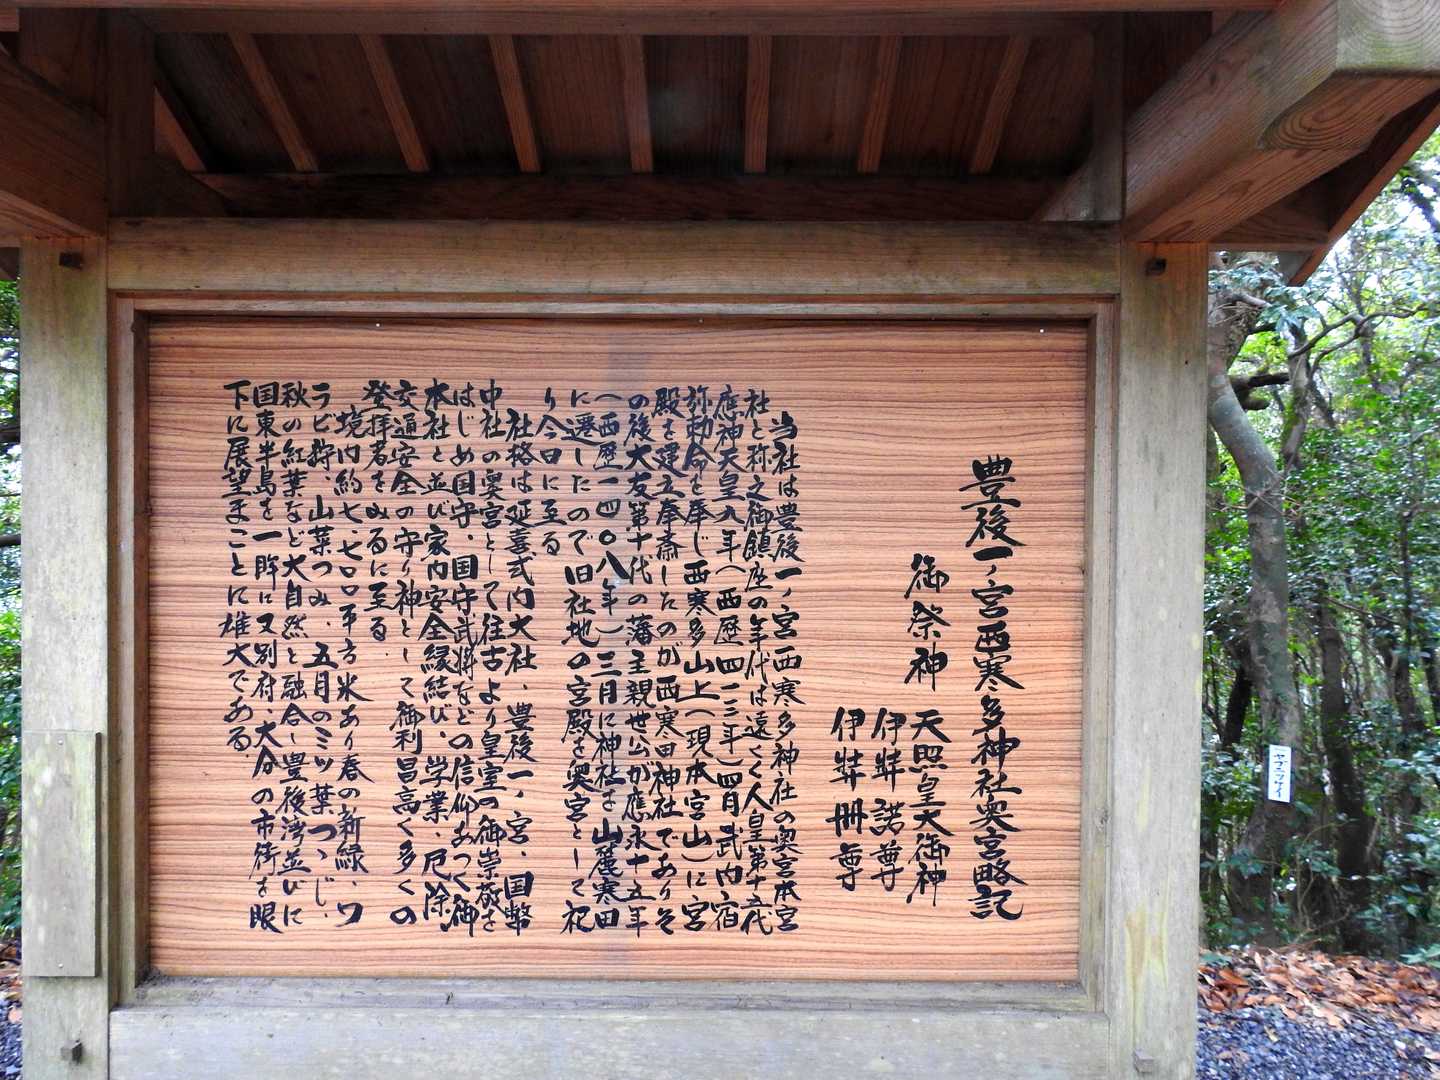 豊後一ノ宮西寒多神社奥宮略記
御祭神
天照皇大御神
伊弉諾尊
伊弉冊尊
当社は豊後一ノ宮西寒多神社の奥宮本宮
社と称之御鎮座の年代は遠く人皇第十五代
應神天皇九年(西歴四一三年)四月武内宿
弥勅命を奉じ西寒多山上(現本宮山)に宮
殿を建立奉斎したのが西寒田神社でありそ
の後大友第十代の藩主親世公が應永十五年
(西歴一四〇八年)三月に神社を山麓寒田
に遷したので旧社地の宮殿を奥宮として祀
り今日に至る
社格は延喜式内大社、豊後一ノ宮、国幣
中社の奥宮として往古より皇室の御崇敬を
はじめ国守、国守武将などの信仰あつく御
本社と並び家内安全縁結び、学業、厄除、
交通安全の守り神として御利昌高く多くの
登拝者をみるに至る
境内約七、七〇〇平方米あり春の新緑、ワ
ラビ狩、山菜つみ、五月のミツ葉つゝじ、
秋の紅葉など大自然と融合し豊後湾並びに
国東半島を一眸に又別府、大分の市街を眼
下に展望まことに雄大である
ヤブニッケイ